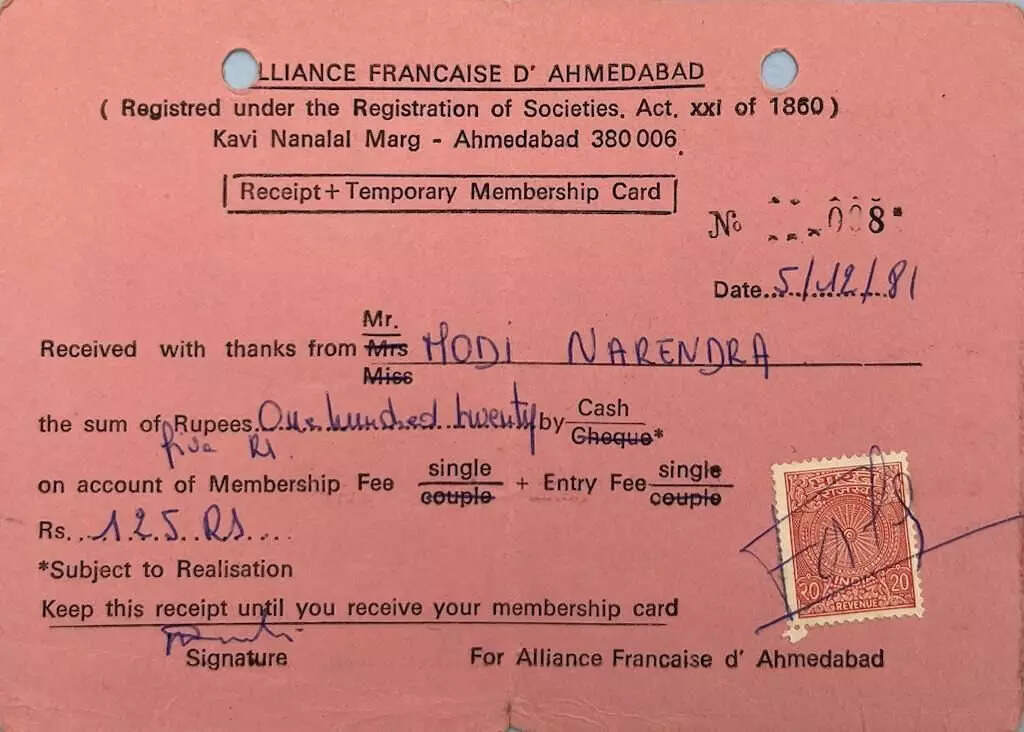 LLIANCE FRANCAISE D' AHMEDABAD
( Registred under the Registration of Societies. Act. xxi of 1860 )
Kavi Nanalal Marg - Ahmedabad 380 006.
Receipt + Temporary Membership Card
№ 008*
Date..5/12/81
Mr.
Received with thanks from Mrs MODI NARENDRA
Miss
the sum of Rupees. One hundred twenty by Cash
Cheque*
five Rs.
on account of Membership Fee single + Entry Fee single
couple couple
Rs...125 RS....
*Subject to Realisation
Keep this receipt until you receive your membership card
Signature For Alliance Francaise d' Ahmedabad
भारत
INDIA
२० 20
REVENUE